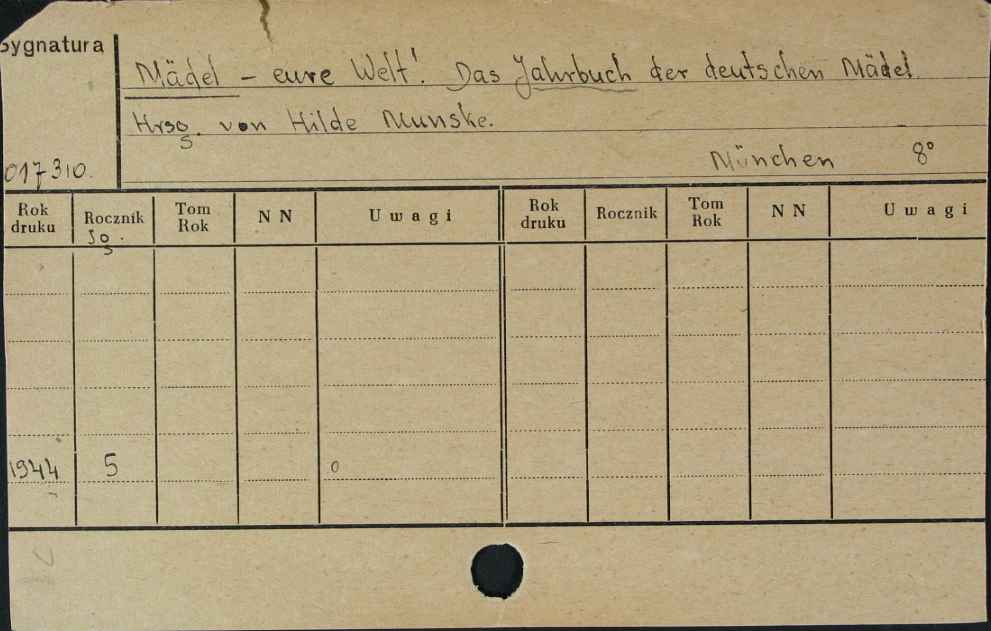 Sygnatura
Mädel – eure Welt! Das Jahrbuch der deutschen Mädel
Hrsg. von Hilde Munske.
München 8°
017310.
Rok druku Rocznik Tom Rok NN Uwagi Rok druku Rocznik Tom Rok NN Uwagi
Jg.
1944 5 0